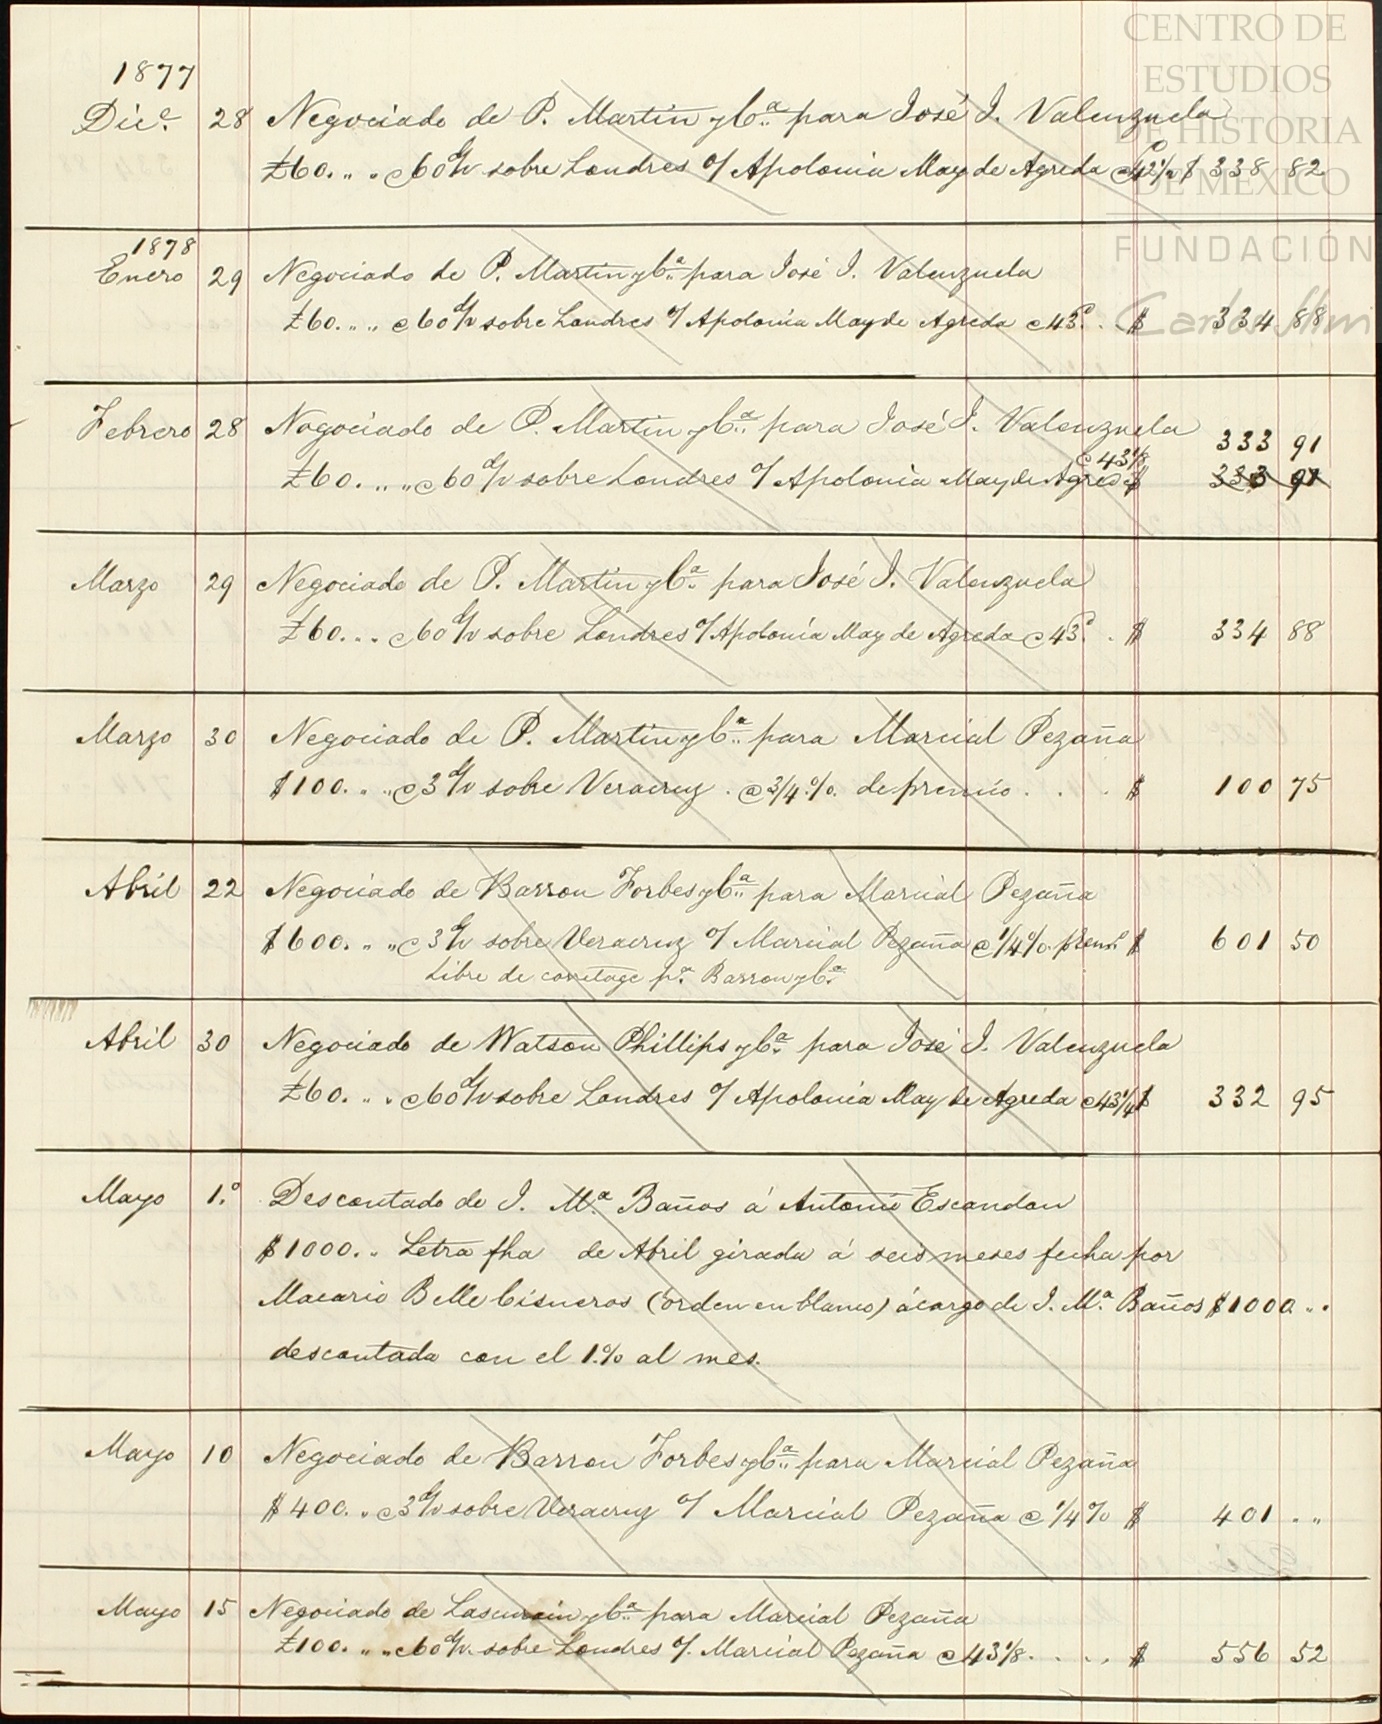 CENTRO DE
ESTUDIOS
DE HISTORIA
DE MÉXICO
FUNDACIÓN
Carlos Slim
1877
Dic.e 28 Negociado de P. Martin y Ca para José I. Valenzuela
£60. „ „ @ 60 d/v sobre Londres o/ Apolonia May de Agreda @ 42½ $ 338 82
1878
Enero 29 Negociado de P. Martin y Ca para José I. Valenzuela
£60. „ „ @ 60 d/v sobre Londres o/ Apolonia May de Agreda @ 43d. . $ 334 88
Febrero 28 Nogociado de P. Martin y Ca para José I. Valenzuela 333 91
@ 43⅛
£60. „ „ @ 60 d/v sobre Londres o/ Apolonia May de Agreda $ 333 91
Marzo 29 Negociado de P. Martin y Ca para José I. Valenzuela
£60. . . @ 60 d/v sobre Londres o/ Apolonia May de Agreda @ 43d. . $ 334 88
Marzo 30 Negociado de P. Martin y Ca para Marcial Pezaña
$100. „ „ @ 3 d/v sobre Veracruz . @ 3/4 % de premio . . . $ 100 75
Abril 22 Negociado de Barron Forbes y Ca para Marcial Pezaña
$600. „ „ @ 3 d/v sobre Veracruz o/ Marcial Pezaña @ 1/4 % premo $ 601 50
Libre de corretage pa. Barron y Ca
Abril 30 Negociado de Watson Phillips y Ca para José I. Valenzuela
£60. „ . @ 60 d/v sobre Londres o/ Apolonia May de Agreda @ 43¼ $ 332 95
Mayo 1.o Descontado de J. Ma. Baños á Antonio Escandon
$1000. „ Letra fha de Abril girada á seis meses fecha por
Macario Belle Cisneros (orden en blanco) á cargo de J. Ma. Baños $1000 „ .
descontada con el 1.% al mes.
Mayo 10 Negociado de Barron Forbes y Ca para Marcial Pezaña
$400. „ @ 3 d/v sobre Veracruz o/ Marcial Pezaña @ 1/4 % $ 401 . „
Mayo 15 Negociado de Lascurain y Ca para Marcial Pezaña
£100. „ „ @ 60 d/v. sobre Londres o/. Marcial Pezaña @ 43⅛ . . . . $ 556 52